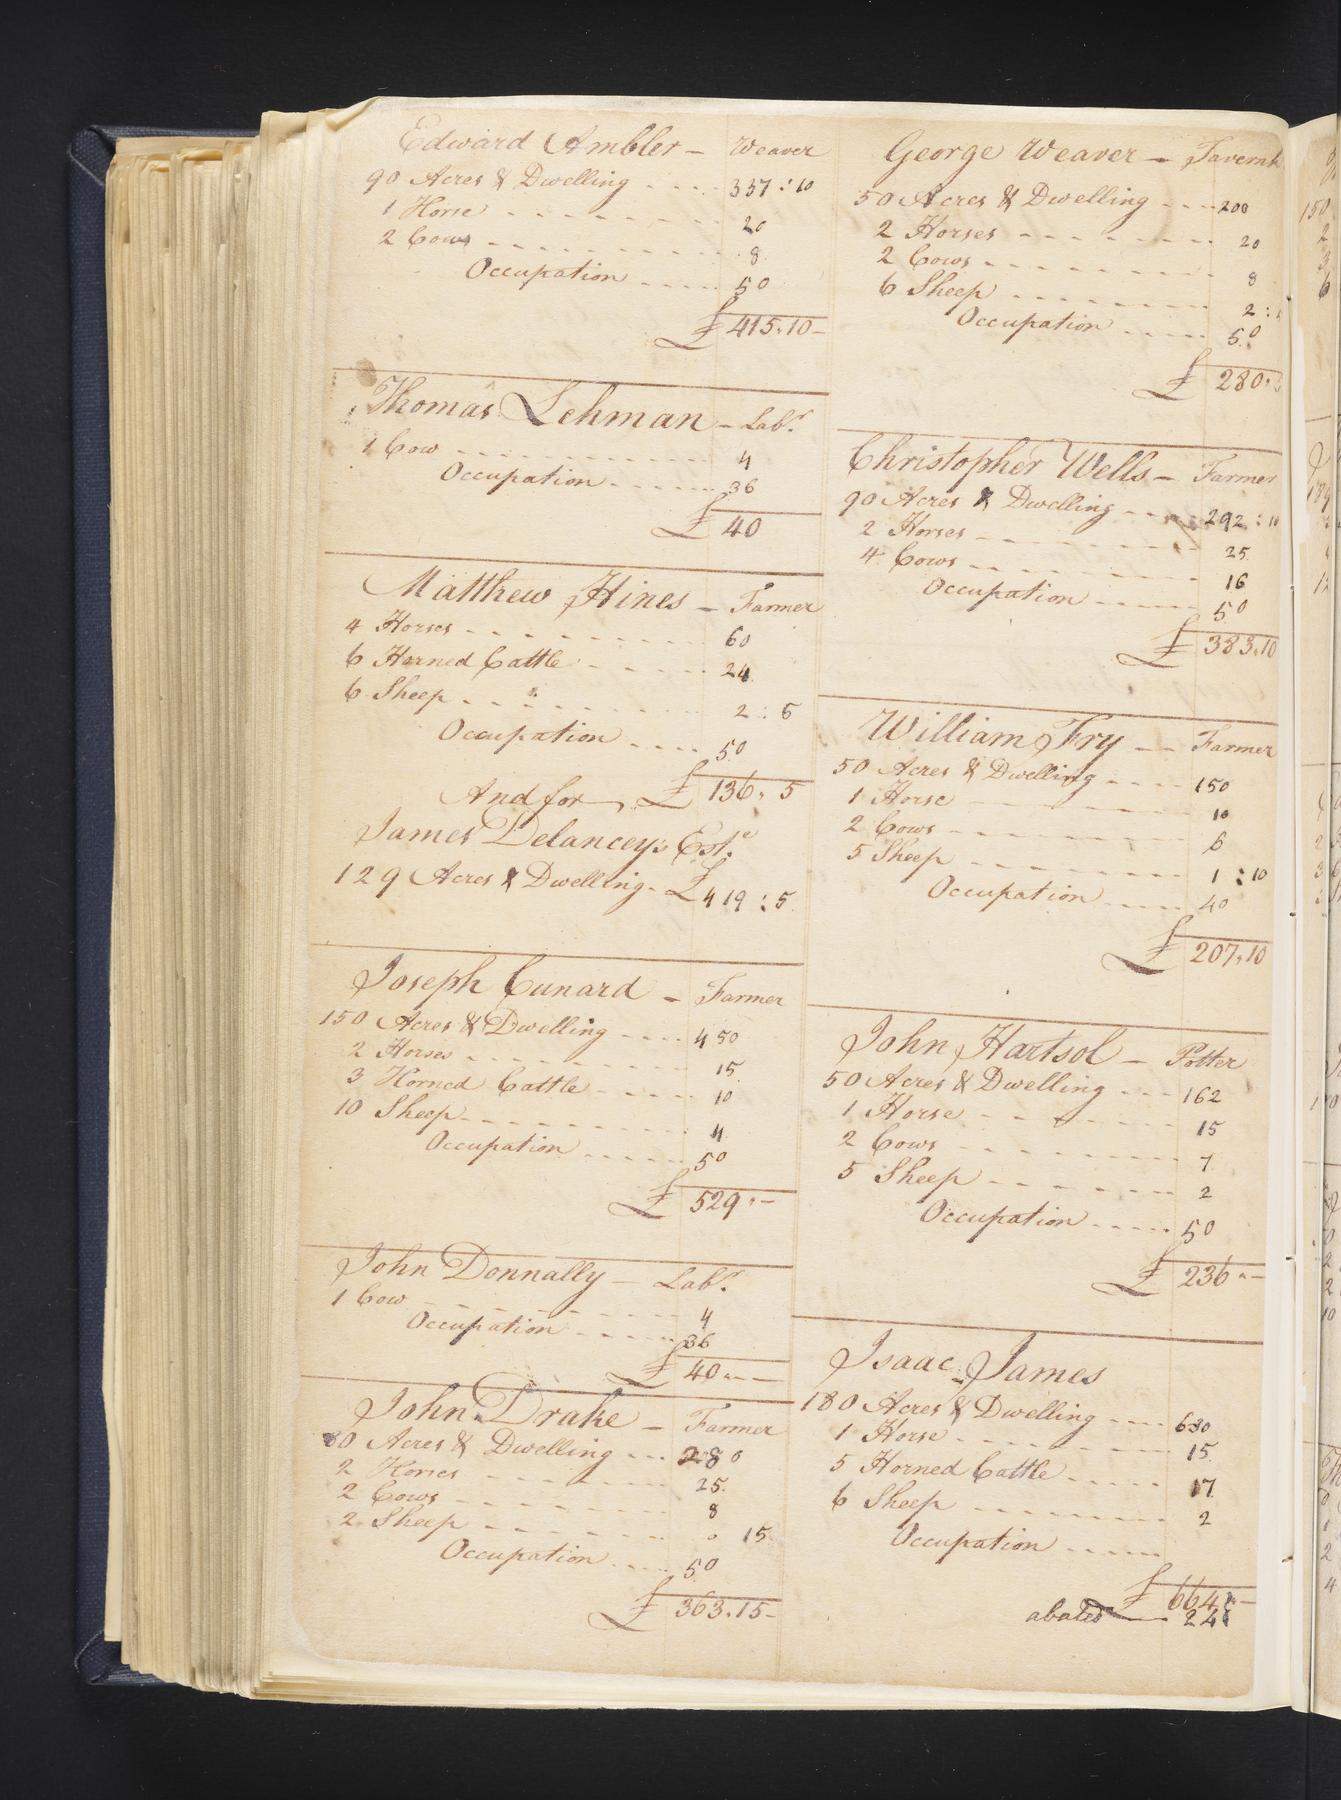 Edward Ambler – Weaver
90 Acres & Dwelling 337 : 10
1 Horse 20
2 Cows 8
Occupation 50
£ 415 " 10 –
Thomas Lehman – Labr.
1 Cow 4
Occupation 36
£ 40
Matthew Hines – Farmer
4 Horses 60
6 Horned Cattle 24
6 Sheep 2 : 5
Occupation 50
And for £ 136 " 5
James Delancey's Este.
129 Acres & Dwelling £ 419 : 5
Joseph Cunard – Farmer
150 Acres & Dwelling 450
2 Horses 15
3 Horned Cattle 10
10 Sheep 4
Occupation 50
£ 529 " –
John Donnally – Labr.
1 Cow 4
Occupation 36
£ 40 " –
John Drake – Farmer
80 Acres & Dwelling 280
2 Horses 25
2 Cows 8
2 Sheep 0 15
Occupation 50
£ 363 " 15 –
George Weaver – Tavernk
50 Acres & Dwelling 200
2 Horses 20
2 Cows 8
6 Sheep 2 :
Occupation 50
£ 280 "
Christopher Wells – Farmer
90 Acres & Dwelling 292 : 10
2 Horses 25
4 Cows 16
Occupation 50
£ 383 " 10
William Fry – Farmer
50 Acres & Dwelling 150
1 Horse 10
2 Cows 6
5 Sheep 1 : 10
Occupation 40
£ 207 " 10
John Hartsol – Potter
50 Acres & Dwelling 162
1 Horse 15
2 Cows 7
5 Sheep 2
Occupation 50
£ 236 " –
Isaac James
180 Acres & Dwelling 630
1 Horse 15
5 Horned Cattle 17
6 Sheep 2
Occupation
£ 664 " –
abated 24